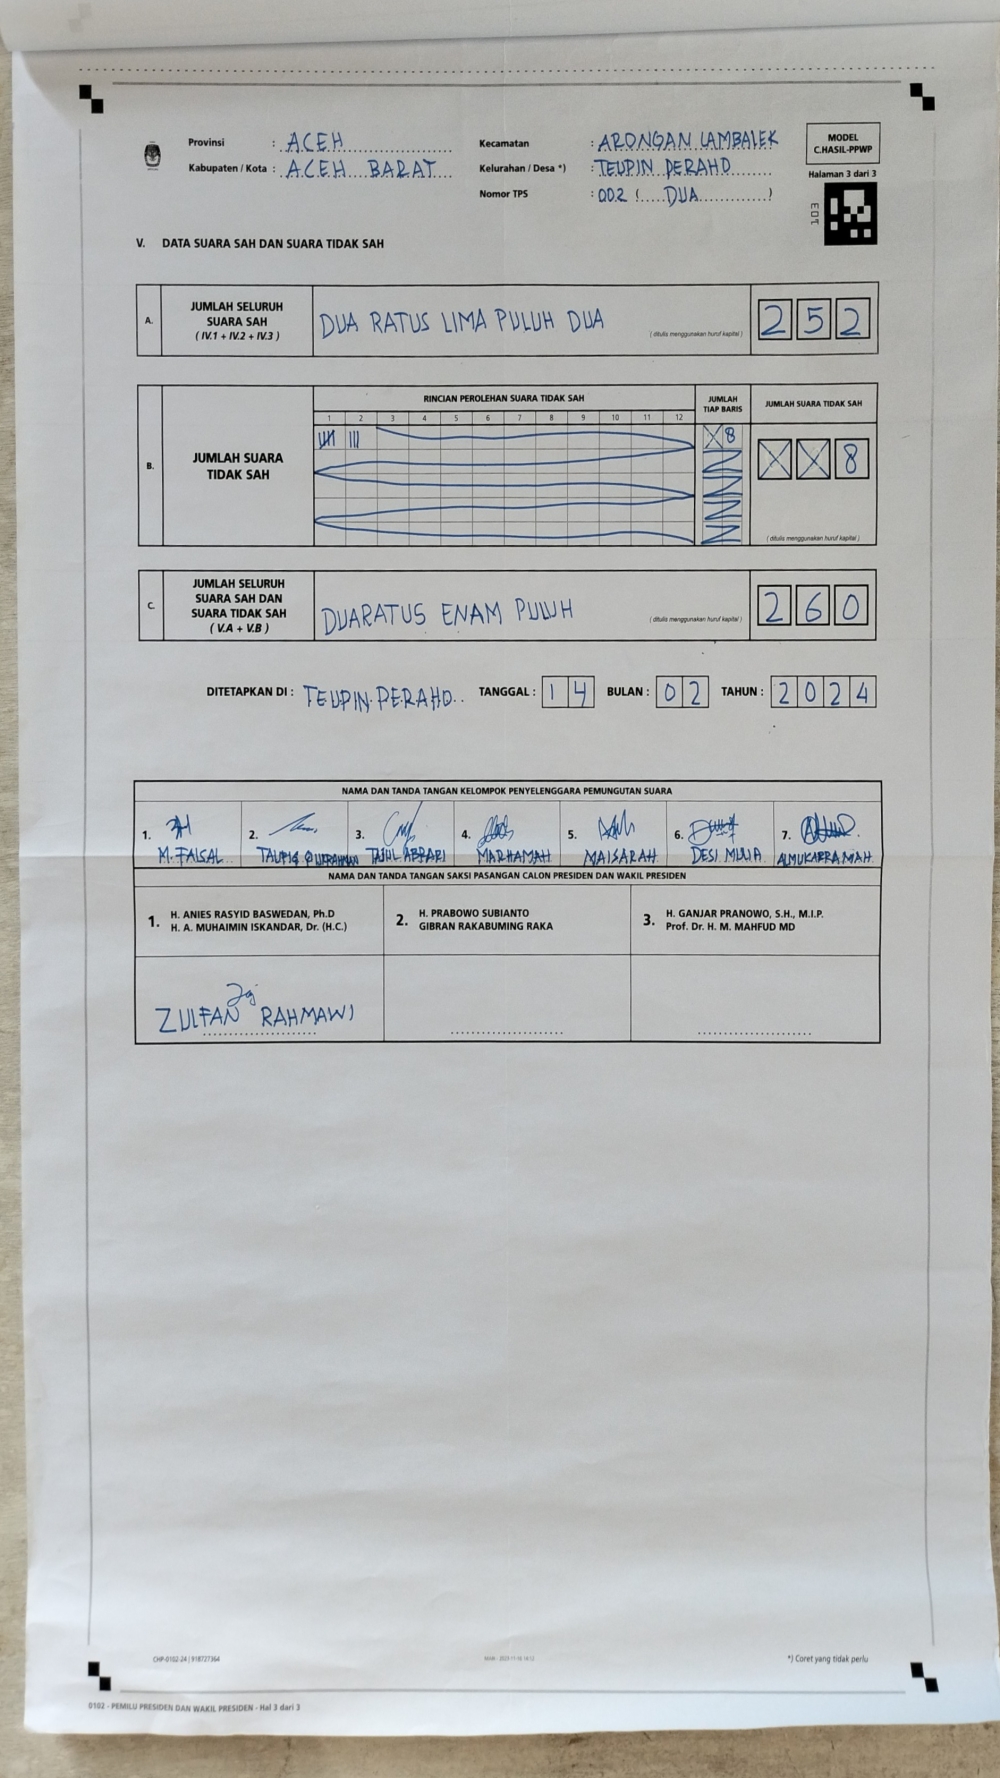 Provinsi : ACEH
Kabupaten / Kota : ACEH BARAT
Kecamatan : ARONGAN LAMBALEK
Kelurahan / Desa *) : TEUPIN PERAHO
Nomor TPS : 002 ( DUA )
MODEL
C.HASIL-PPWP
Halaman 3 dari 3
V. DATA SUARA SAH DAN SUARA TIDAK SAH
A. JUMLAH SELURUH SUARA SAH ( IV.1 + IV.2 + IV.3 ) DUA RATUS LIMA PULUH DUA ( ditulis menggunakan huruf kapital ) 2 5 2
RINCIAN PEROLEHAN SUARA TIDAK SAH JUMLAH TIAP BARIS JUMLAH SUARA TIDAK SAH
1 2 3 4 5 6 7 8 9 10 11 12
B. JUMLAH SUARA TIDAK SAH X 8 X X 8
( ditulis menggunakan huruf kapital )
C. JUMLAH SELURUH SUARA SAH DAN SUARA TIDAK SAH ( V.A + V.B ) DUARATUS ENAM PULUH ( ditulis menggunakan huruf kapital ) 2 6 0
DITETAPKAN DI : TEUPIN PERAHO TANGGAL : 1 4 BULAN : 0 2 TAHUN : 2 0 2 4
NAMA DAN TANDA TANGAN KELOMPOK PENYELENGGARA PEMUNGUTAN SUARA
1. 2. 3. 4. 5. 6. 7.
M. FAISAL TAJUL ABRARI MARHAMAH MAISARAH DESI MULIA ALMUKARRAMAH
NAMA DAN TANDA TANGAN SAKSI PASANGAN CALON PRESIDEN DAN WAKIL PRESIDEN
1. H. ANIES RASYID BASWEDAN, Ph.D
H. A. MUHAIMIN ISKANDAR, Dr. (H.C.)
2. H. PRABOWO SUBIANTO
GIBRAN RAKABUMING RAKA
3. H. GANJAR PRANOWO, S.H., M.I.P.
Prof. Dr. H. M. MAHFUD MD
ZULFAN RAHMAWI
CHP-0102-24 | 918727364
*) Coret yang tidak perlu
0102 - PEMILU PRESIDEN DAN WAKIL PRESIDEN - Hal 3 dari 3